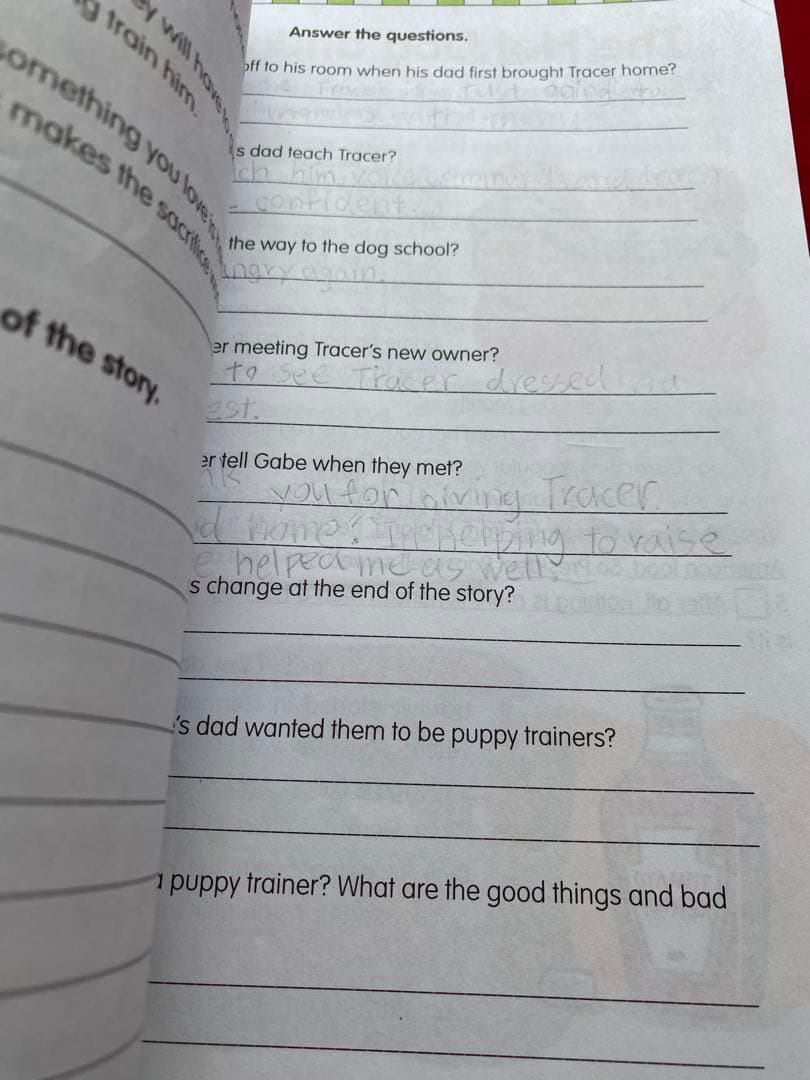 train him.
y will have to
something you love is
makes the sacrifice
of the story.
Answer the questions.
off to his room when his dad first brought Tracer home?
Tracer is just going to
s dad teach Tracer?
ch him voice commands and
confident.
the way to the dog school?
angry again.
er meeting Tracer's new owner?
to see Tracer dressed
est.
er tell Gabe when they met?
you for giving Tracer
home? helping to raise
e helped me as well.
s change at the end of the story?
's dad wanted them to be puppy trainers?
a puppy trainer? What are the good things and bad